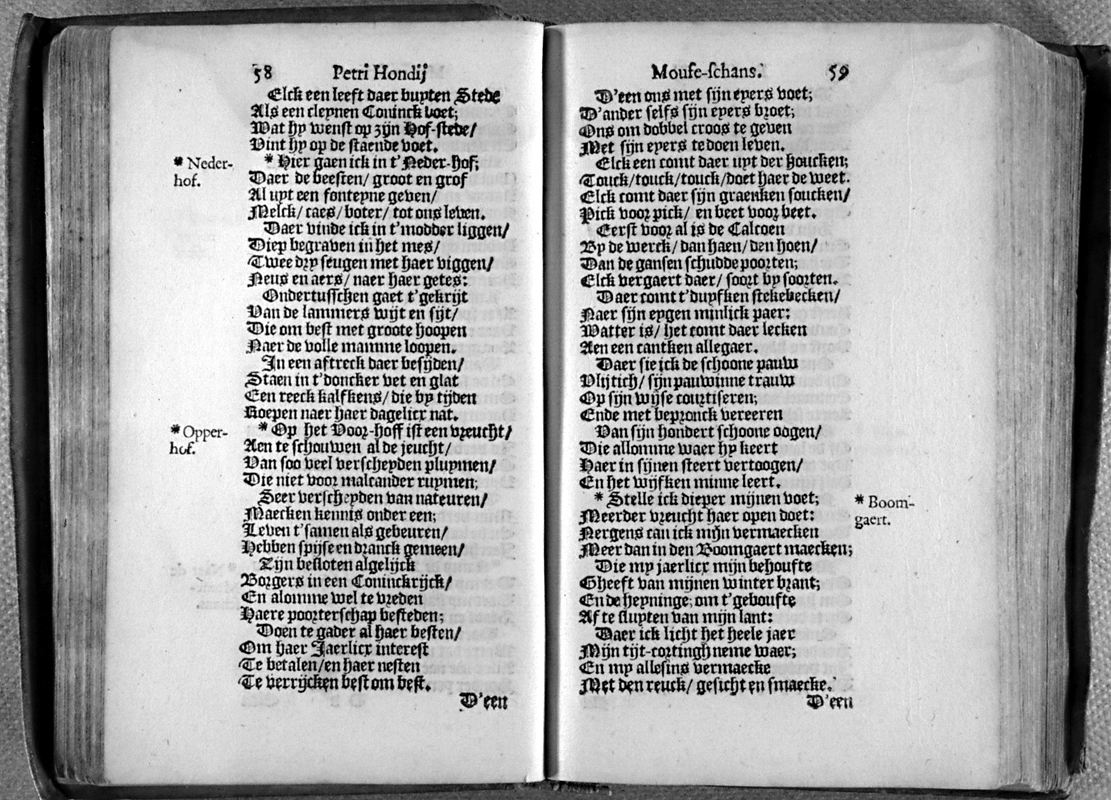 58 Petri Hondij
Elck een leeft daer buyten Stede
Als een cleynen Coninck doet;
Wat hy wenst op zijn Hof-stede/
Vint hy op de staende voet.
* Neder-
hof.
* Hier gaen ick in t'Neder-hof;
Daer de beesten/ groot en grof
Al uyt een fonteyne geven/
Melck/ caes/ boter/ tot ons leven.
Daer vinde ick in t'modder liggen/
Diep begraven in het mes/
Twee dry seugen met haer viggen/
Neus en aers/ naer haer getes:
Ondertusschen gaet t'gekrijt
Van de lammers wijt en sijt/
Die om best met groote hoopen
Naer de volle mamme loopen.
In een aftreck daer besyden/
Staen in t'doncker vet en glat
Een reeck kalfkens/ die by tijden
Roepen naer haer dagelicx nat.
* Opper-
hof.
* Op het Voor-hoff ist een vreucht/
Aen te schouwen al de jeucht/
Van soo veel verscheyden pluymen/
Die niet voor malcander ruymen;
Seer verscheyden van natueren/
Maecken kennis onder een;
Leven t'samen als gebeuren/
Hebben spijse en dranck gemeen/
Zijn besloten algelijck
Borgers in een Coninckrijck/
En alomme wel te vreden
Haere poorterschap besteden;
Doen te gader al haer besten/
Om haer Jaerlicx interest
Te betalen/ en haer nesten
Te verrijcken best om best.
D'een
Mouse-schans. 59
D'een ons met sijn eyers voet;
D'ander selfs sijn eyers broet;
Ons om dobbel croos te geven
Met sijn eyers te doen leven.
Elck een comt daer uyt der houcken;
Touck/touck/touck/doet haer de weet.
Elck comt daer sijn graenken soucken/
Pick voor pick/ en beet voor beet.
Eerst voor al is de Calcoen
By de werck/ dan haen/ den hoen/
Dan de gansen schudde poorten;
Elck vergaert daer/ soort by soorten.
Daer comt t'duyfken stekebecken/
Naer sijn eygen minlick paer:
Watter is/ het comt daer lecken
Aen een cantken allegaer.
Daer sie ick de schoone pauw
Vlijtich/ sijn pauwinne trauw
Op sijn wijse courtiseren;
Ende met bepronck vereeren
Van sijn hondert schoone oogen/
Die allomme waer hy keert
Haer in sijnen steert vertoogen/
En het wijfken minne leert.
* Stelle ick dieper mijnen voet;
* Boom-
gaert.
Meerder vreucht haer open doet:
Nergens can ick mijn vermaecken
Meer dan in den Boomgaert maecken;
Die my jaerlicx mijn behoufte
Gheeft van mijnen winter brant;
Ende heyninge; om t'geboufte
Af te sluyten van mijn lant:
Daer ick licht het heele jaer
Mijn tijt-cortingh neme waer;
En my allesins vermaecke
Met den reuck/ gesicht en smaecke.
D'een